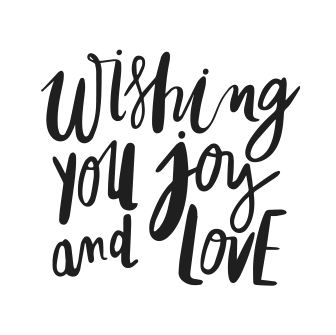 wishing
you joy
and LOVE